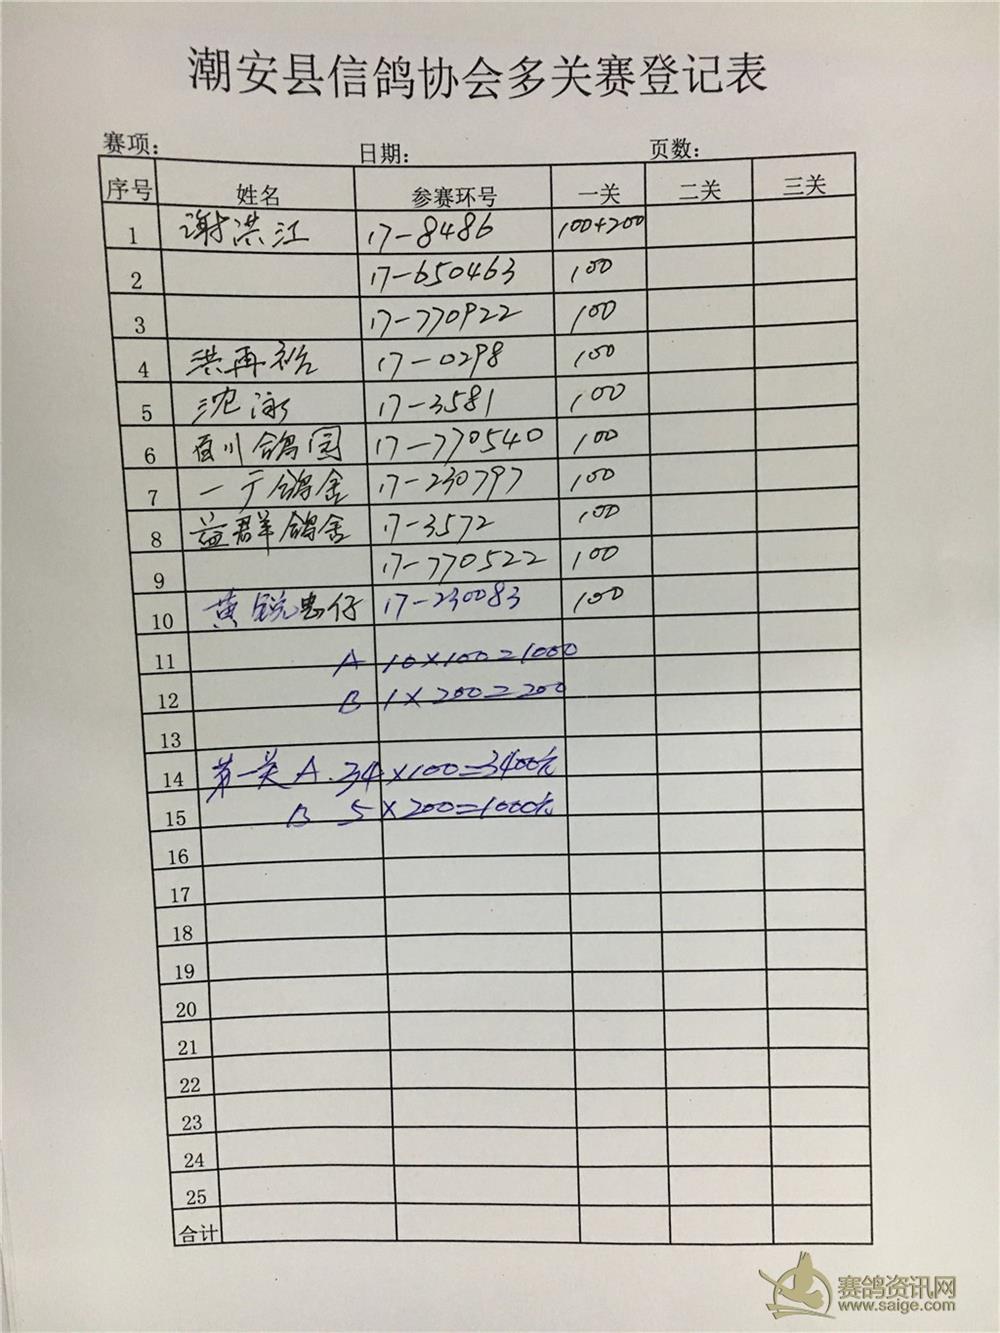 潮安县信鸽协会多关赛登记表
赛项： 日期： 页数：
序号 姓名 参赛环号 一关 二关 三关
1 谢洪江 17-8486 100+200
2 17-650463 100
3 17-770922 100
4 洪再裕 17-0298 100
5 沈泳 17-3581 100
6 百川鸽园 17-770540 100
7 一广鸽舍 17-230797 100
8 益群鸽舍 17-3572 100
9 17-770522 100
10 黄锐忠仔 17-230083 100
11 A 10×100=1000
12 B 1×200=200
13
14 第一关 A.34×100=3400元
15 B 5×200=1000元
16
17
18
19
20
21
22
23
24
25
合计
赛鸽资讯网
www.saige.com